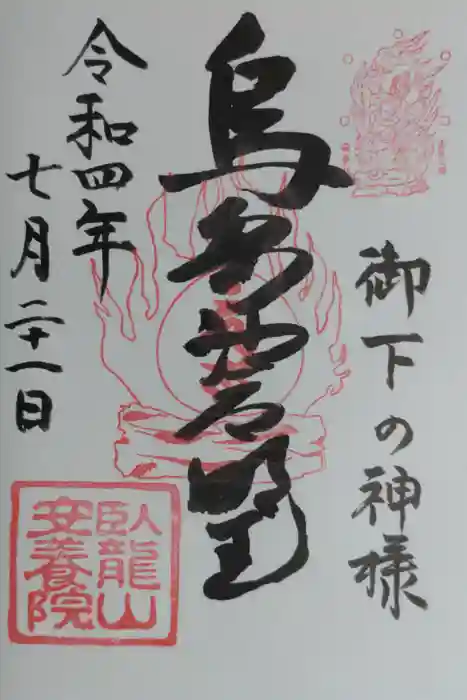 御下の神様
烏芻沙摩明王
令和四年
七月二十一日
臥龍山
安養院